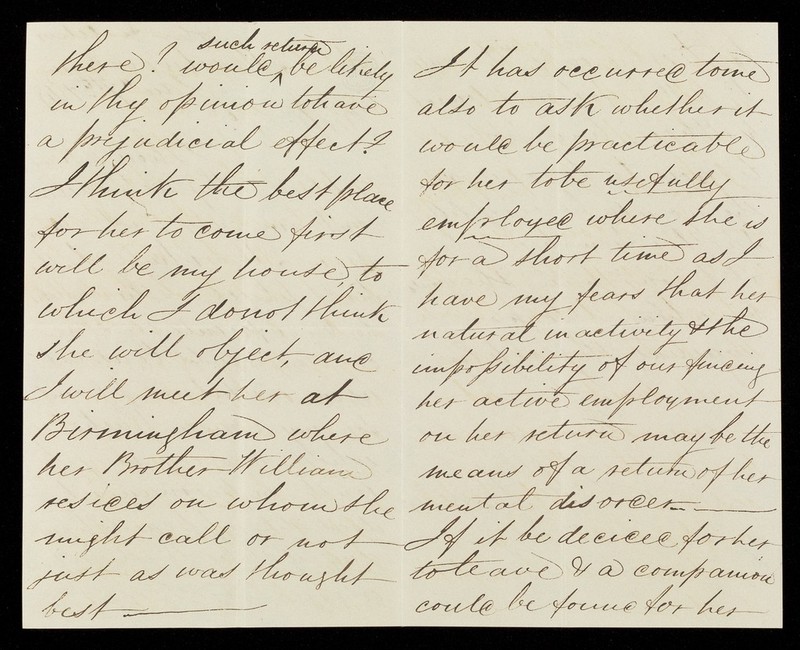 there? would such return be likely
in thy opinion to have
a prejudicial effect?
I think the best place
for her to come first
will be my house, to
which I do not think
she will object, and
I will meet her at
Birmingham where
her Brother William
resides on whom she
might call or not
just as was thought
best
It has occurred to me
also to ask whether it
would be practicable
for her to be usefully
employed where she is
for a short time as I
have my fears that her
natural inactivity & the
impossibility of our finding
her active employment
on her return may be the
means of a return of her
mental disorder
If it be decided for her
to leave & a companion
could be found for her